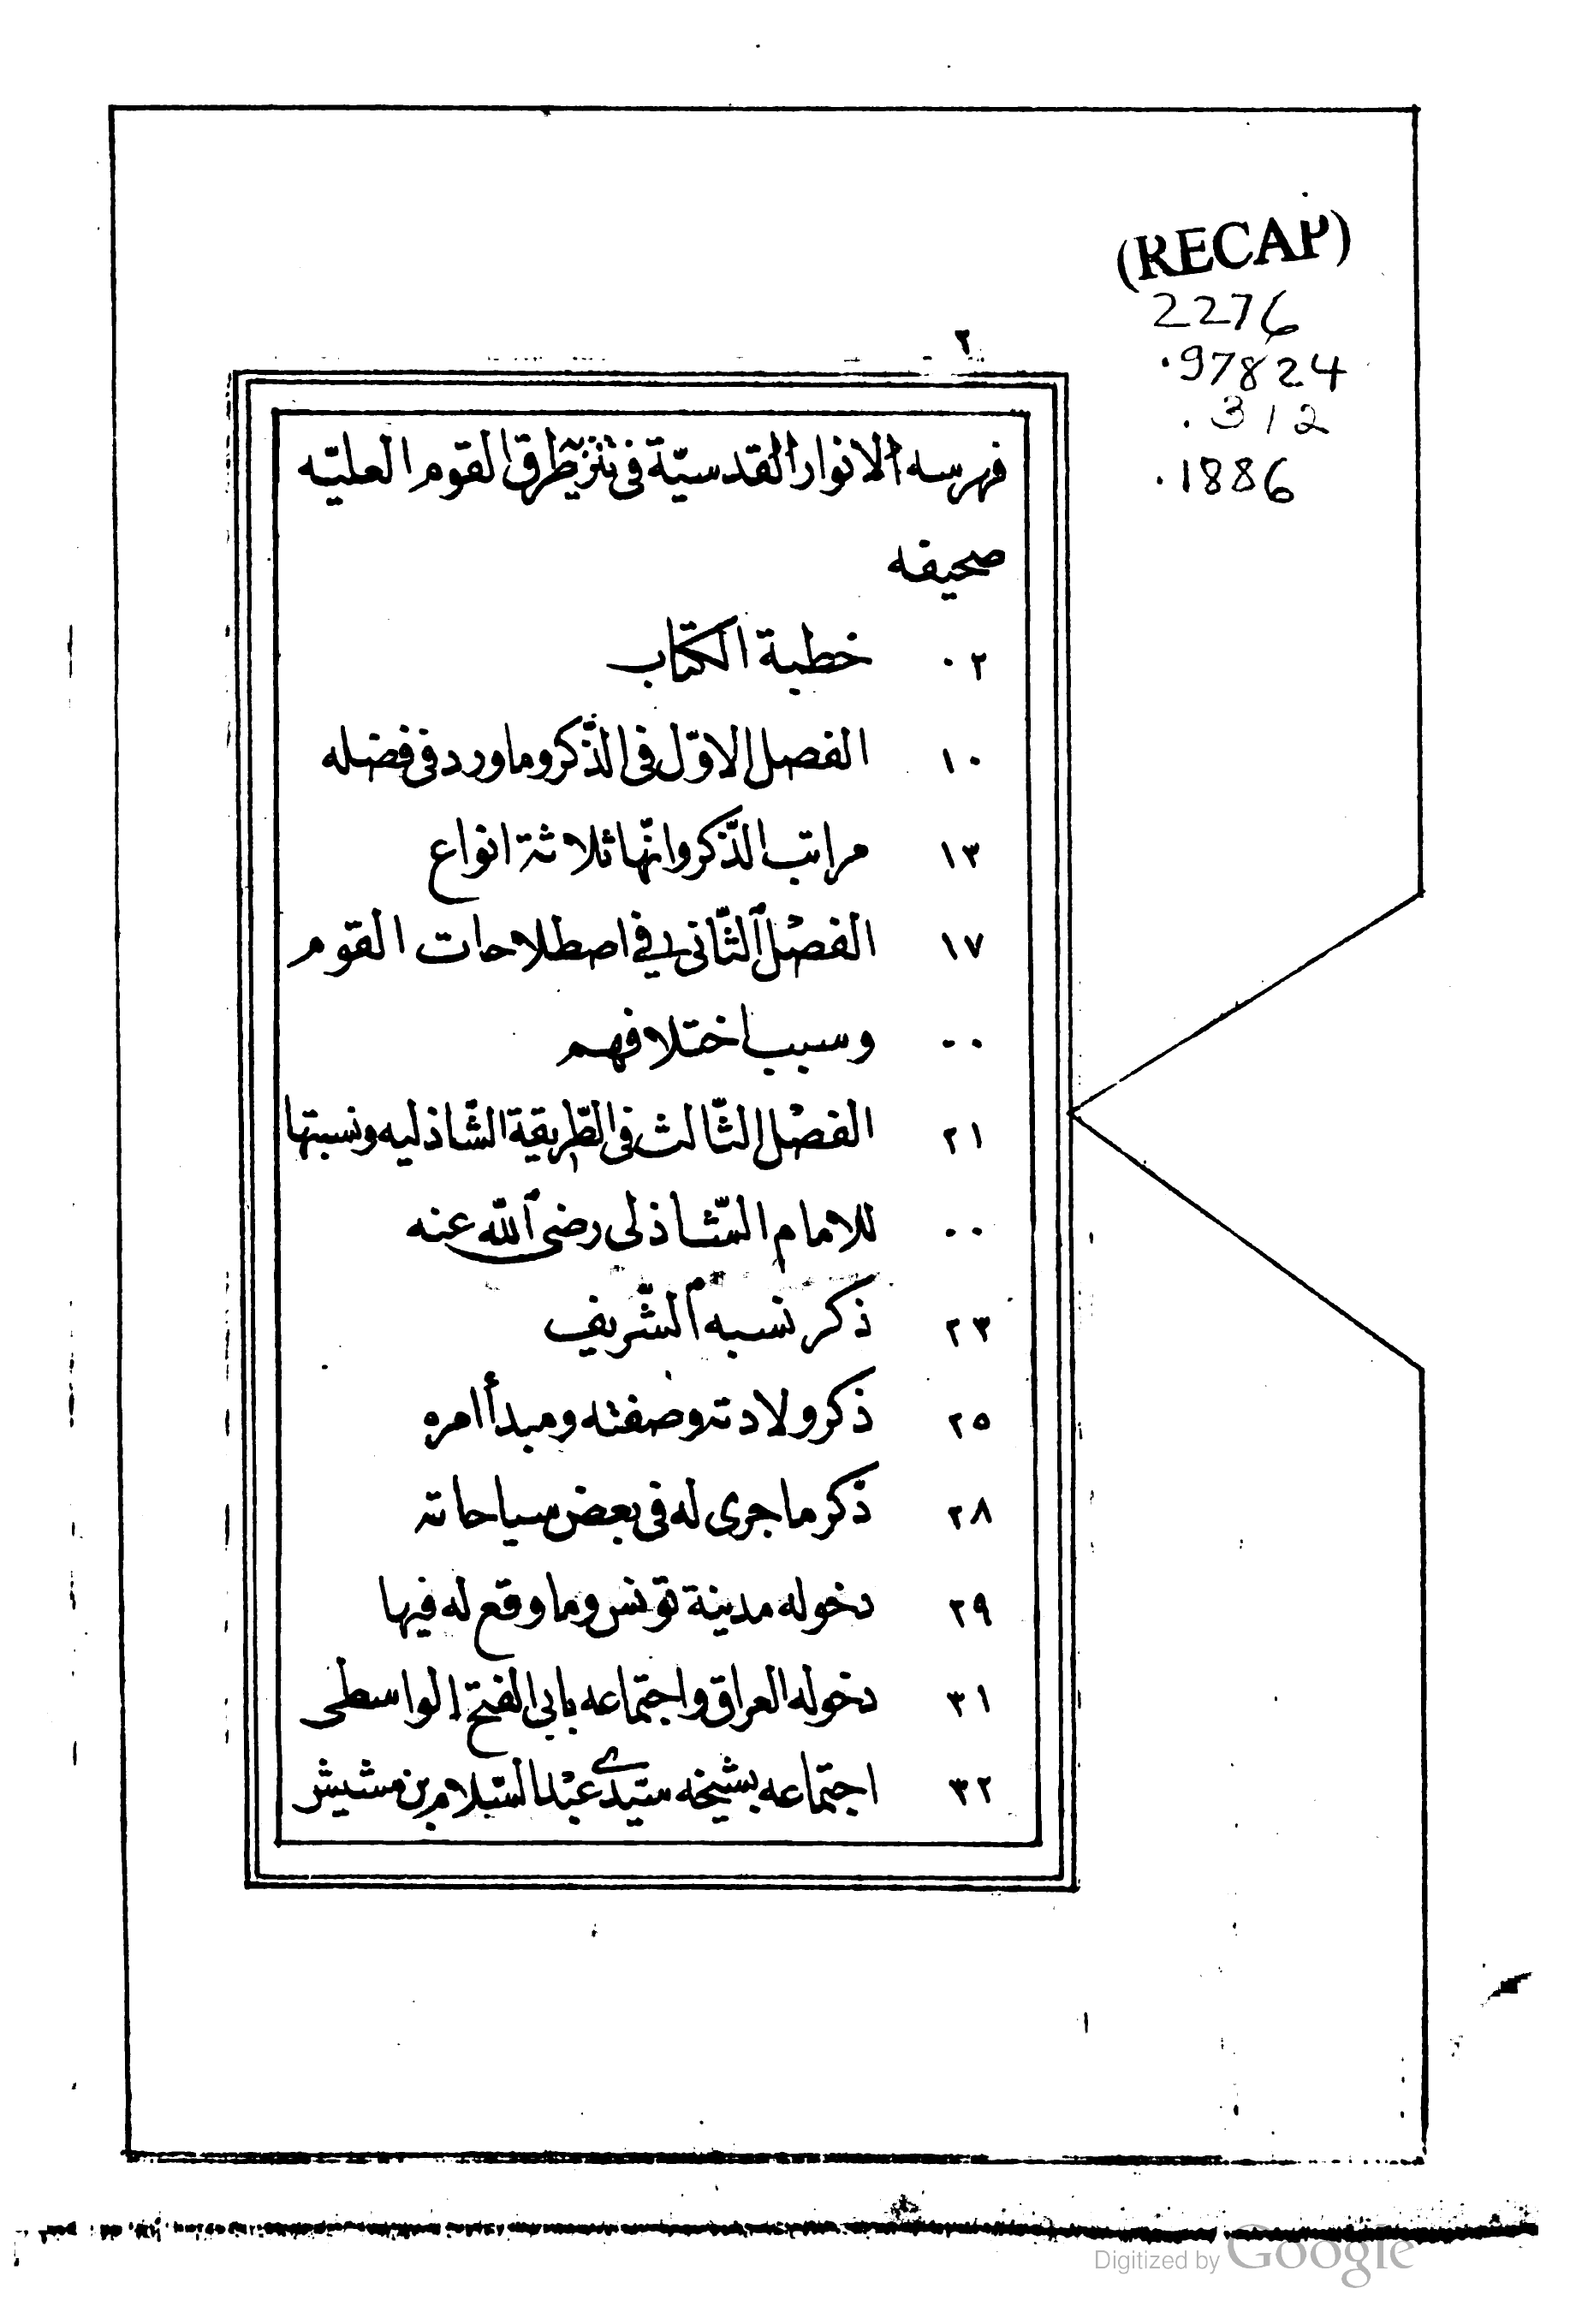 (RECAP)
2276
.97824
.312
.1886
٢
فهرسه الانوار القدسيّة فى تنزيه طرق القوم العليّه
صحيفه
٠٢ خطبة الكتاب
١٠ الفصل الاوّل فى الذّكر وما ورد فى فضله
١٣ مراتب الذّكر وانّها ثلاثة انواع
١٧ الفصل الثّانى في اصطلاحات القوم
٠٠ وسبب اختلافهم
٢١ الفصل الثّالث فى الطّريقة الشّاذليه ونسبتها
٠٠ للامام الشّاذلى رضى الله عنه
٢٣ ذكر نسبه الشّريف
٢٥ ذكر ولادته وصفته ومبدأ امره
٢٨ ذكر ما جرى له فى بعض سياحاته
٢٩ دخوله مدينة تونس وما وقع له فيها
٣١ دخوله العراق واجتماعه بابى الفتح الواسطى
٣٢ اجتماعه بشيخه سيّدي عبد السّلام بن مشيش
Digitized by Google